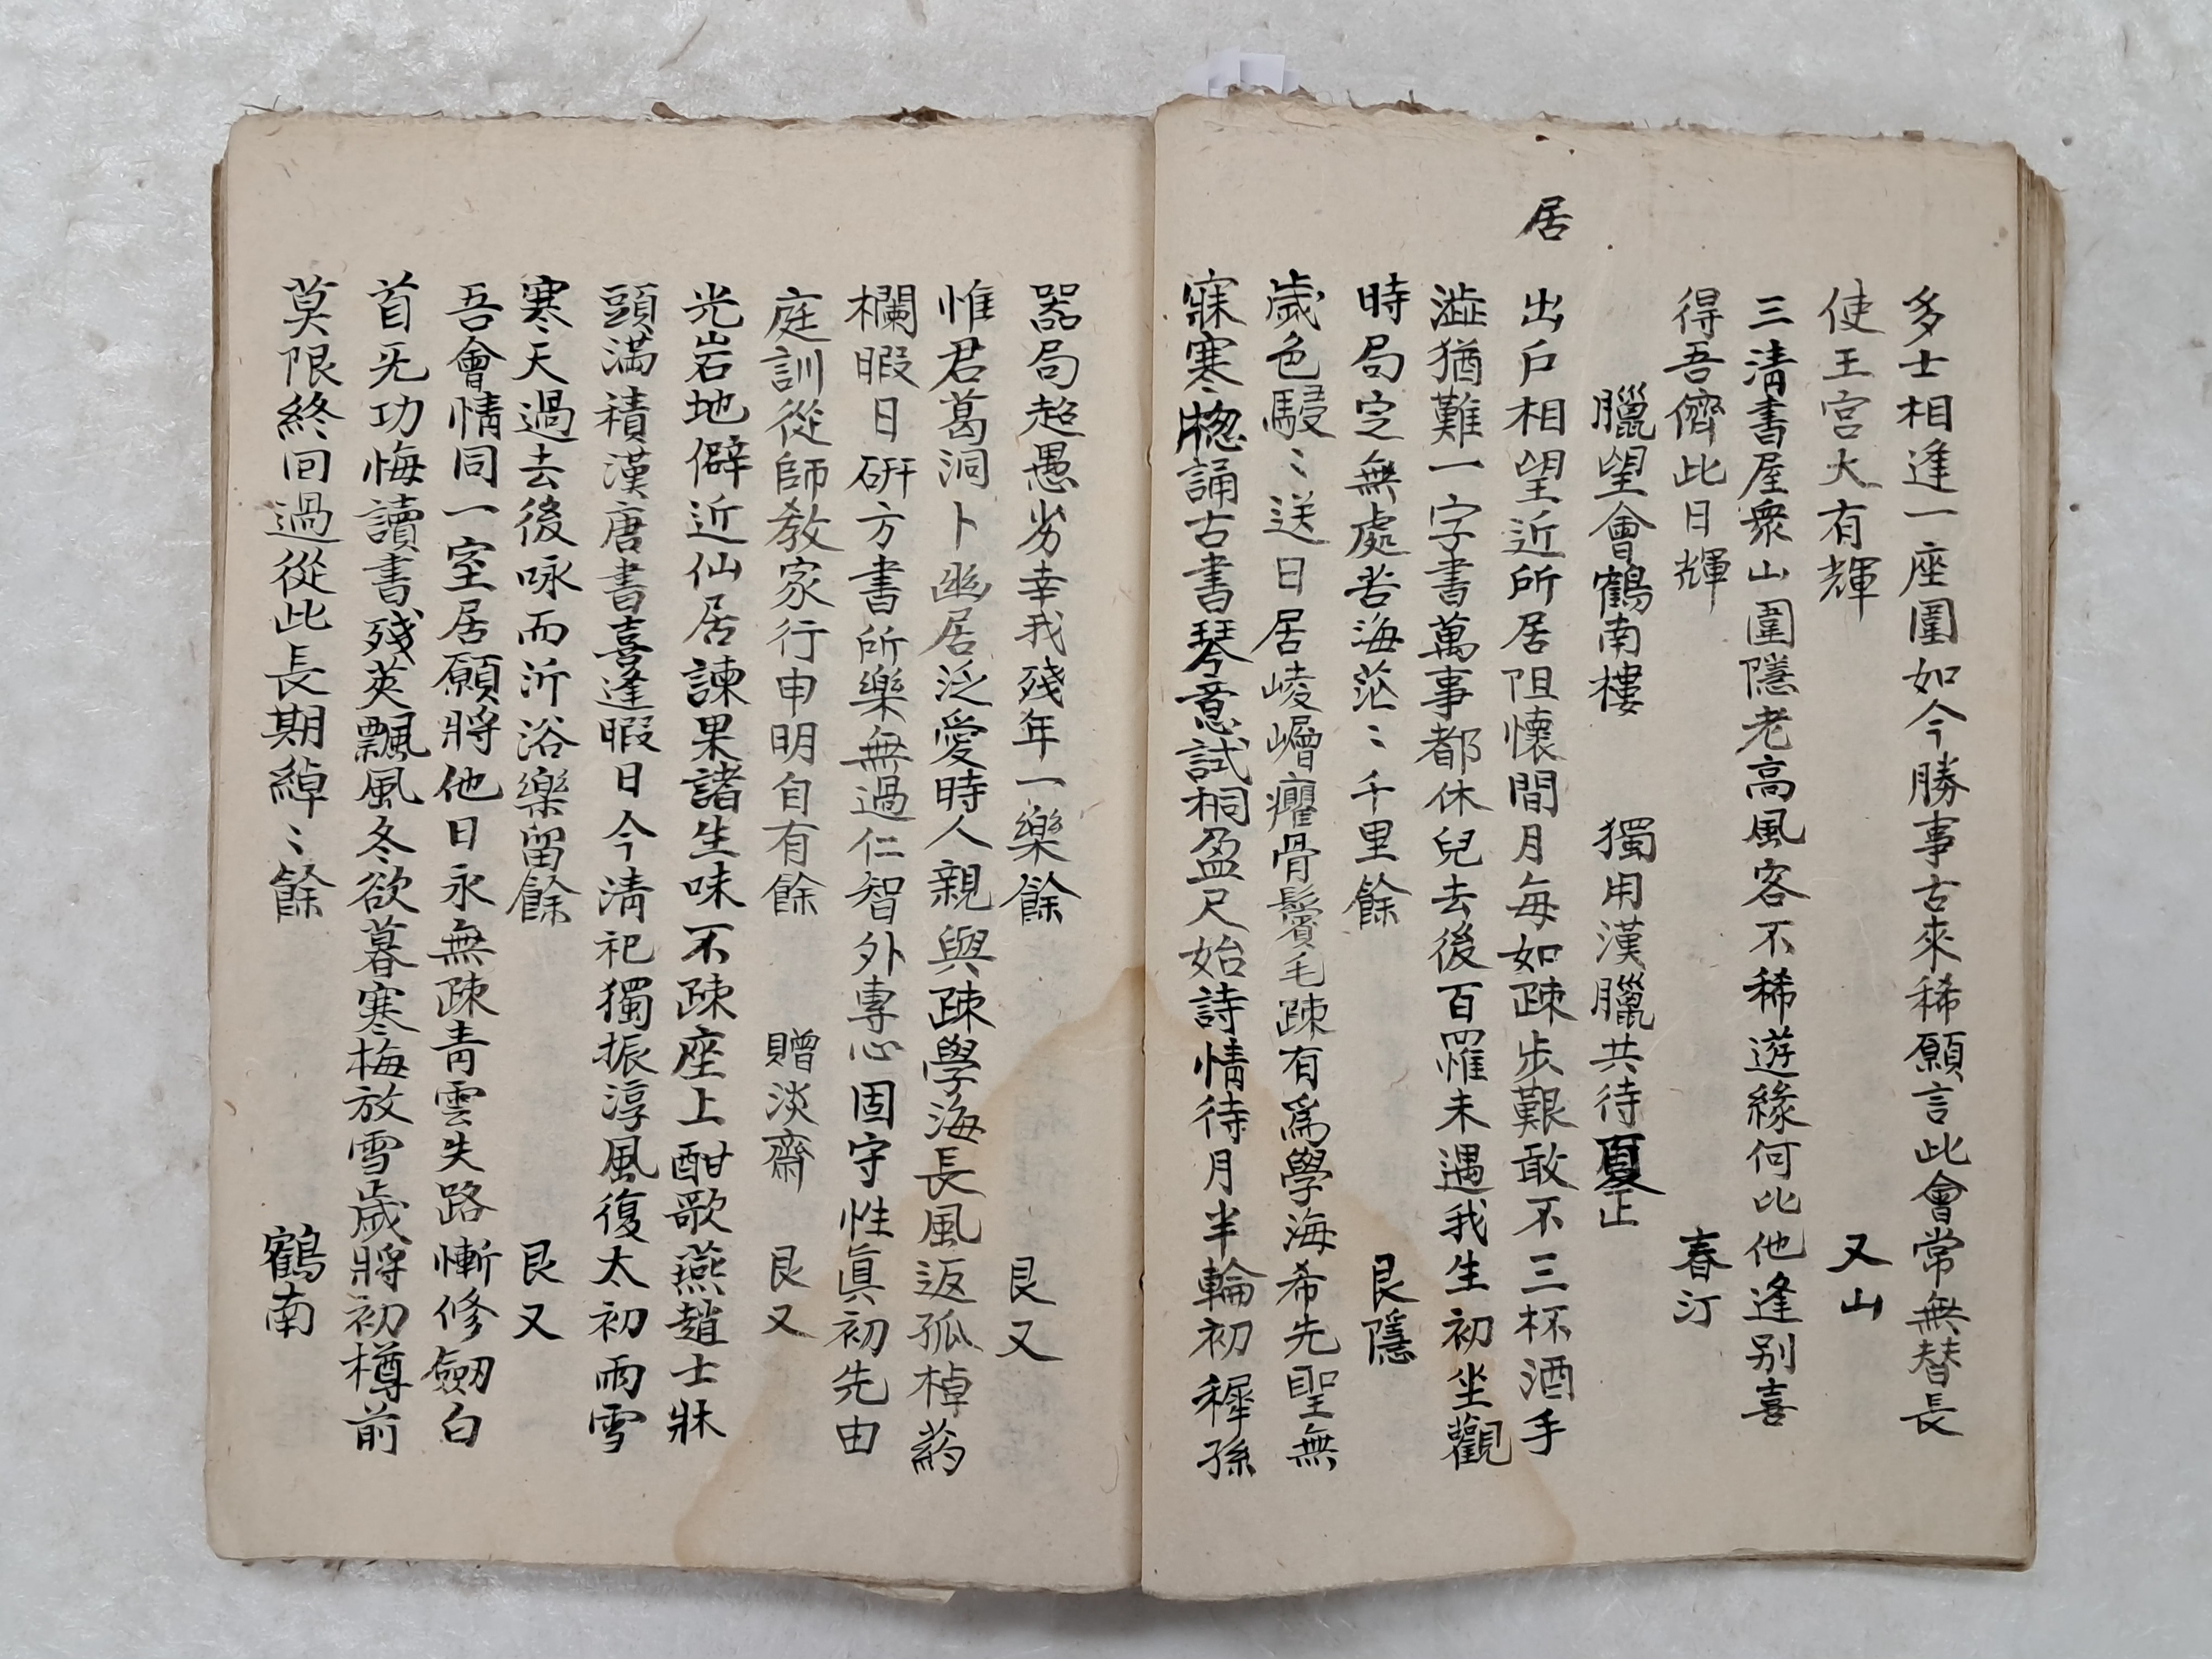 多士相逢一座圍如今勝事古來稀願言此會常無替長
使王宮大有輝 又山
三淸書屋衆山圍隱老高風客不稀遊緣何比他逢别喜
得吾儕此日輝 春汀
臘望會鶴南樓 獨用漢臘共待夏正
居
出戶相望近所居阻懷間月每如疎步艱敢不三杯酒手
澁猶難一字書萬事都休兒去後百罹未遇我生初坐觀
時局定無處苦海茫〻千里餘 艮隱
歲色駸〻送日居崚嶒癯骨鬢毛疎有爲學海希先聖無
寐寒牕誦古書琴意試桐盈尺始詩情待月半輪初穉孫
器局超愚劣幸我殘年一樂餘 艮又
惟君葛洞卜幽居泛愛時人親與疎學海長風返孤棹葯
欄暇日硏方書所樂無過仁智外專心固守性眞初先由
庭訓從師敎家行申明自有餘 贈淡齋 艮又
光岩地僻近仙居諫果諸生味不疎座上酣歌燕趙士牀
頭滿積漢唐書喜逢暇日今淸祀獨振淳風復太初雨雪
寒天過去後咏而沂浴樂留餘 艮又
吾會情同一室居願將他日永無疎靑雲失路慚修劒白
首旡功悔讀書殘莢飄風冬欲暮寒梅放雪歲將初樽前
莫限終回過從此長期綽〻餘 鶴南